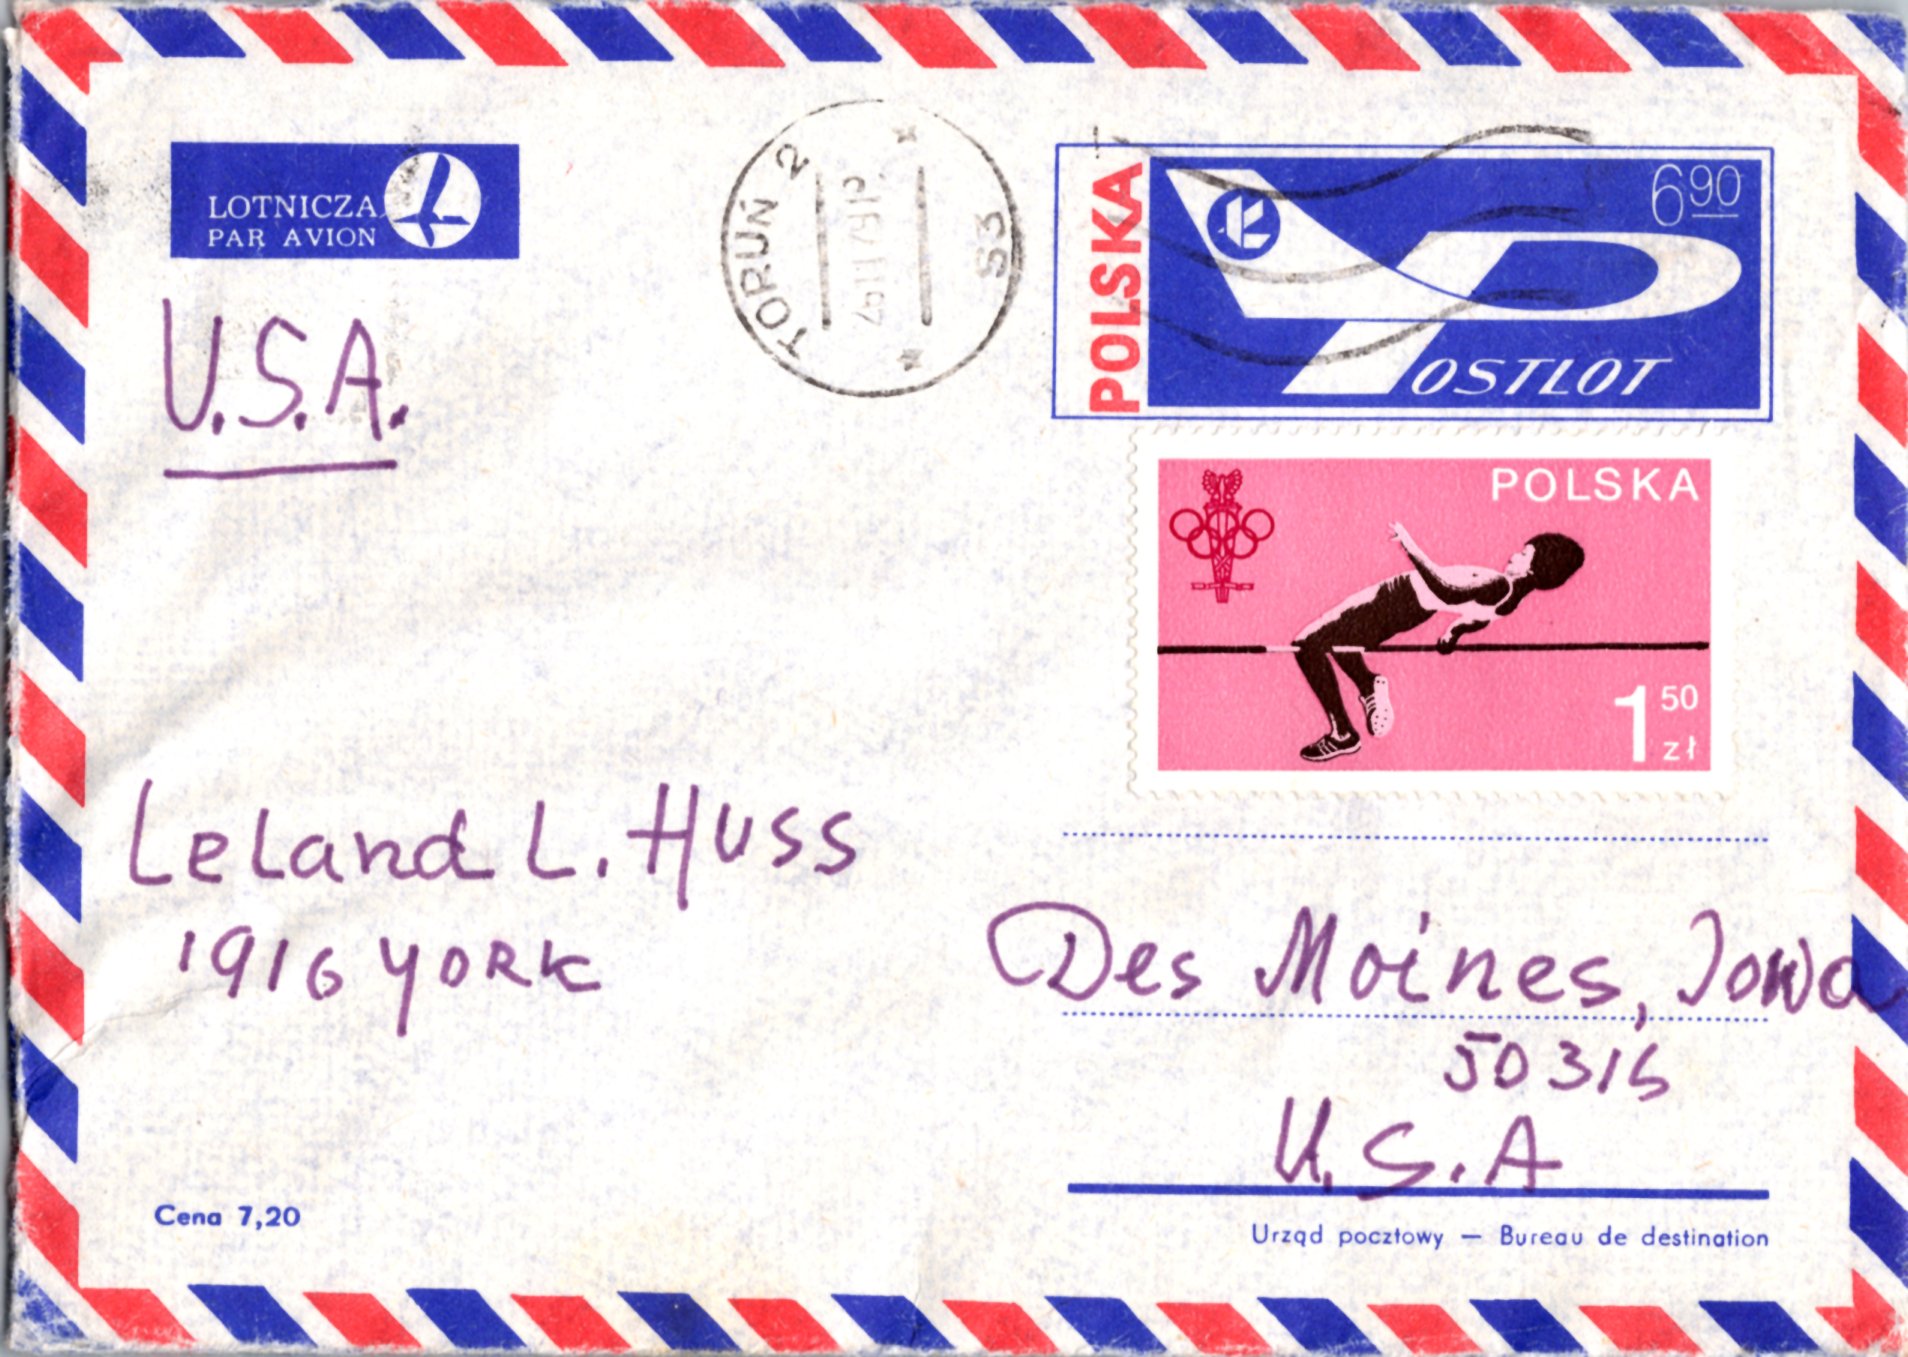 LOTNICZA
PAR AVION
TORUŃ 2
53
POLSKA
6 90
POSTLOT
U.S.A.
POLSKA
1 50 zł
Leland L. Huss
1916 YORK
Des Moines, Iowa
50316
U.S.A
Cena 7,20
Urząd pocztowy — Bureau de destination